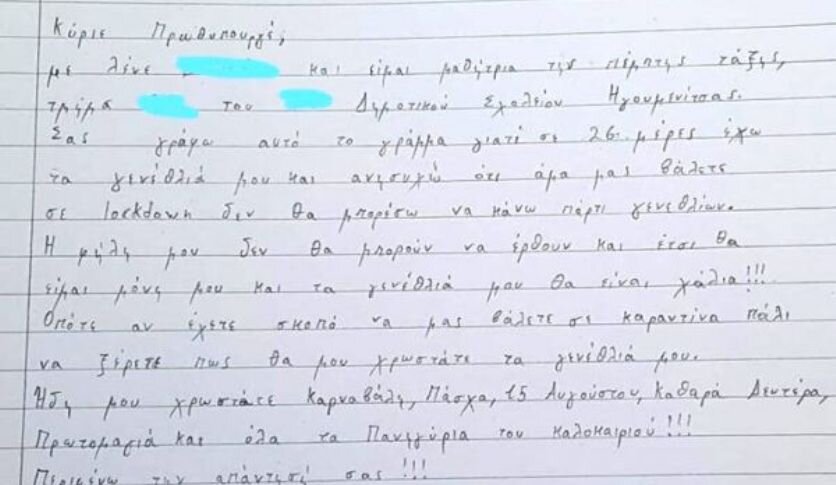 Κύριε Πρωθυπουργέ,
με λένε και είμαι μαθήτρια της πέμπτης τάξης,
τμήμα του Δημοτικού Σχολείου Ηγουμενίτσας.
Σας γράφω αυτό το γράμμα γιατί σε 26 μέρες έχω
τα γενέθλιά μου και ανησυχώ ότι άμα μας βάλετε
σε lockdown δεν θα μπορέσω να κάνω πάρτι γενεθλίων.
Η φήλη μου δεν θα μπορούν να έρθουν και έτσι θα
είμαι μόνη μου και τα γενέθλιά μου θα είναι χάλια!!!
Οπότε αν έχετε σκοπό να μας βάλετε σε καραντίνα πάλι
να ξέρετε πως θα μου χρωστάτε τα γενέθλιά μου.
Ήδη μου χρωστάτε Καρναβάλη, Πάσχα, 15 Αυγούστου, Καθαρά Δευτέρα,
Πρωτομαγιά και όλα τα Πανηγύρια του καλοκαιριού!!!
Περιμένω την απάντησή σας!!!